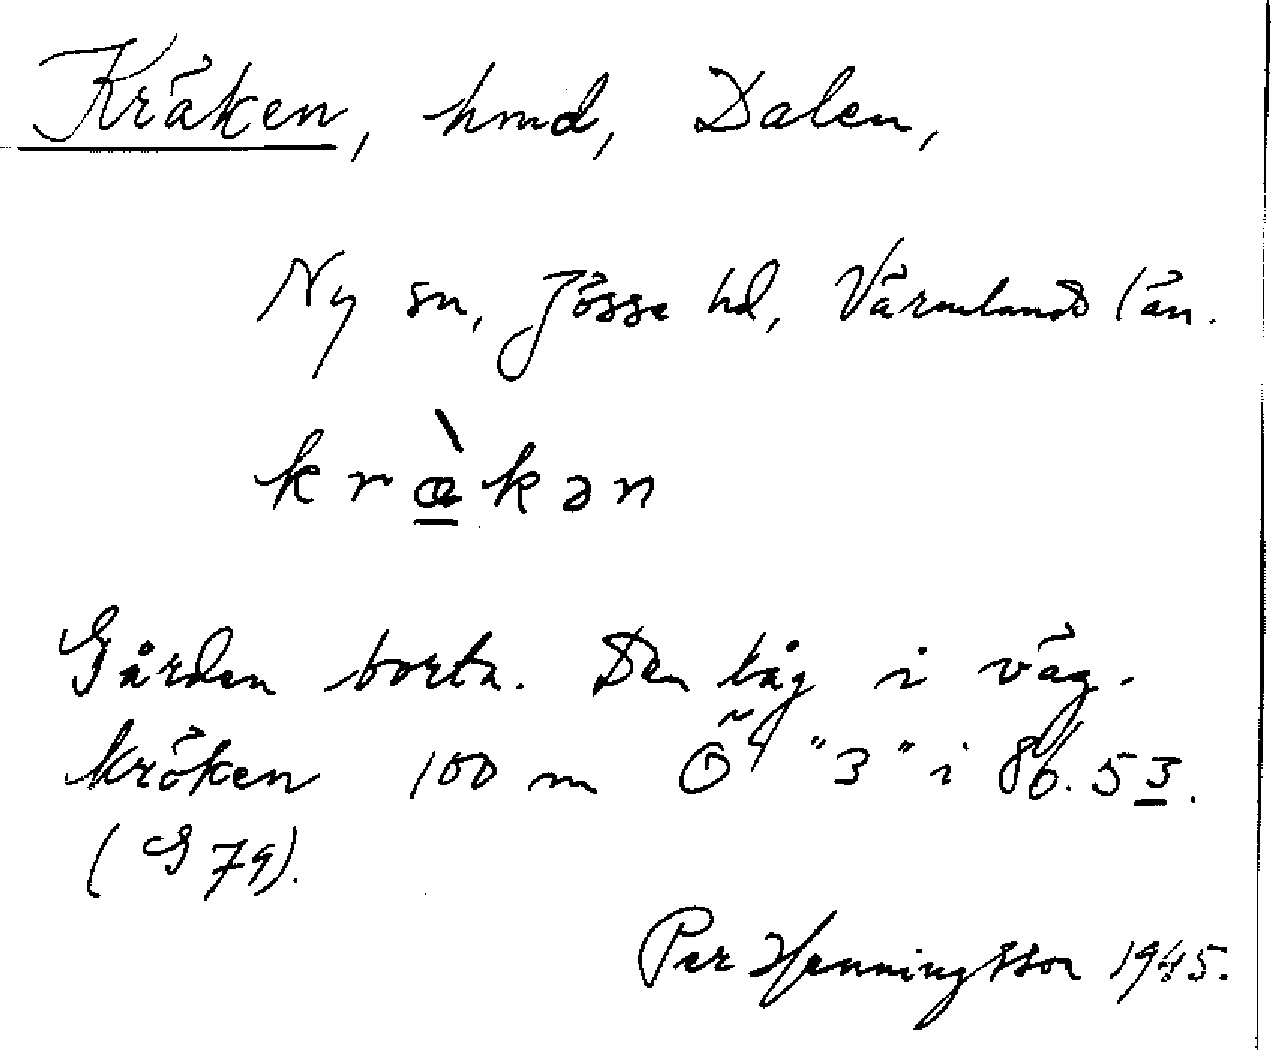 Kräken, hmd, Dalen,
Ny sn, Jösse hd, Värmlands län.
kræ̀kən
Gården borta. Den låg i väg-
kröken 100 m Ö "3" i 86.53.
(G 79).
Per Henningsson 1945.